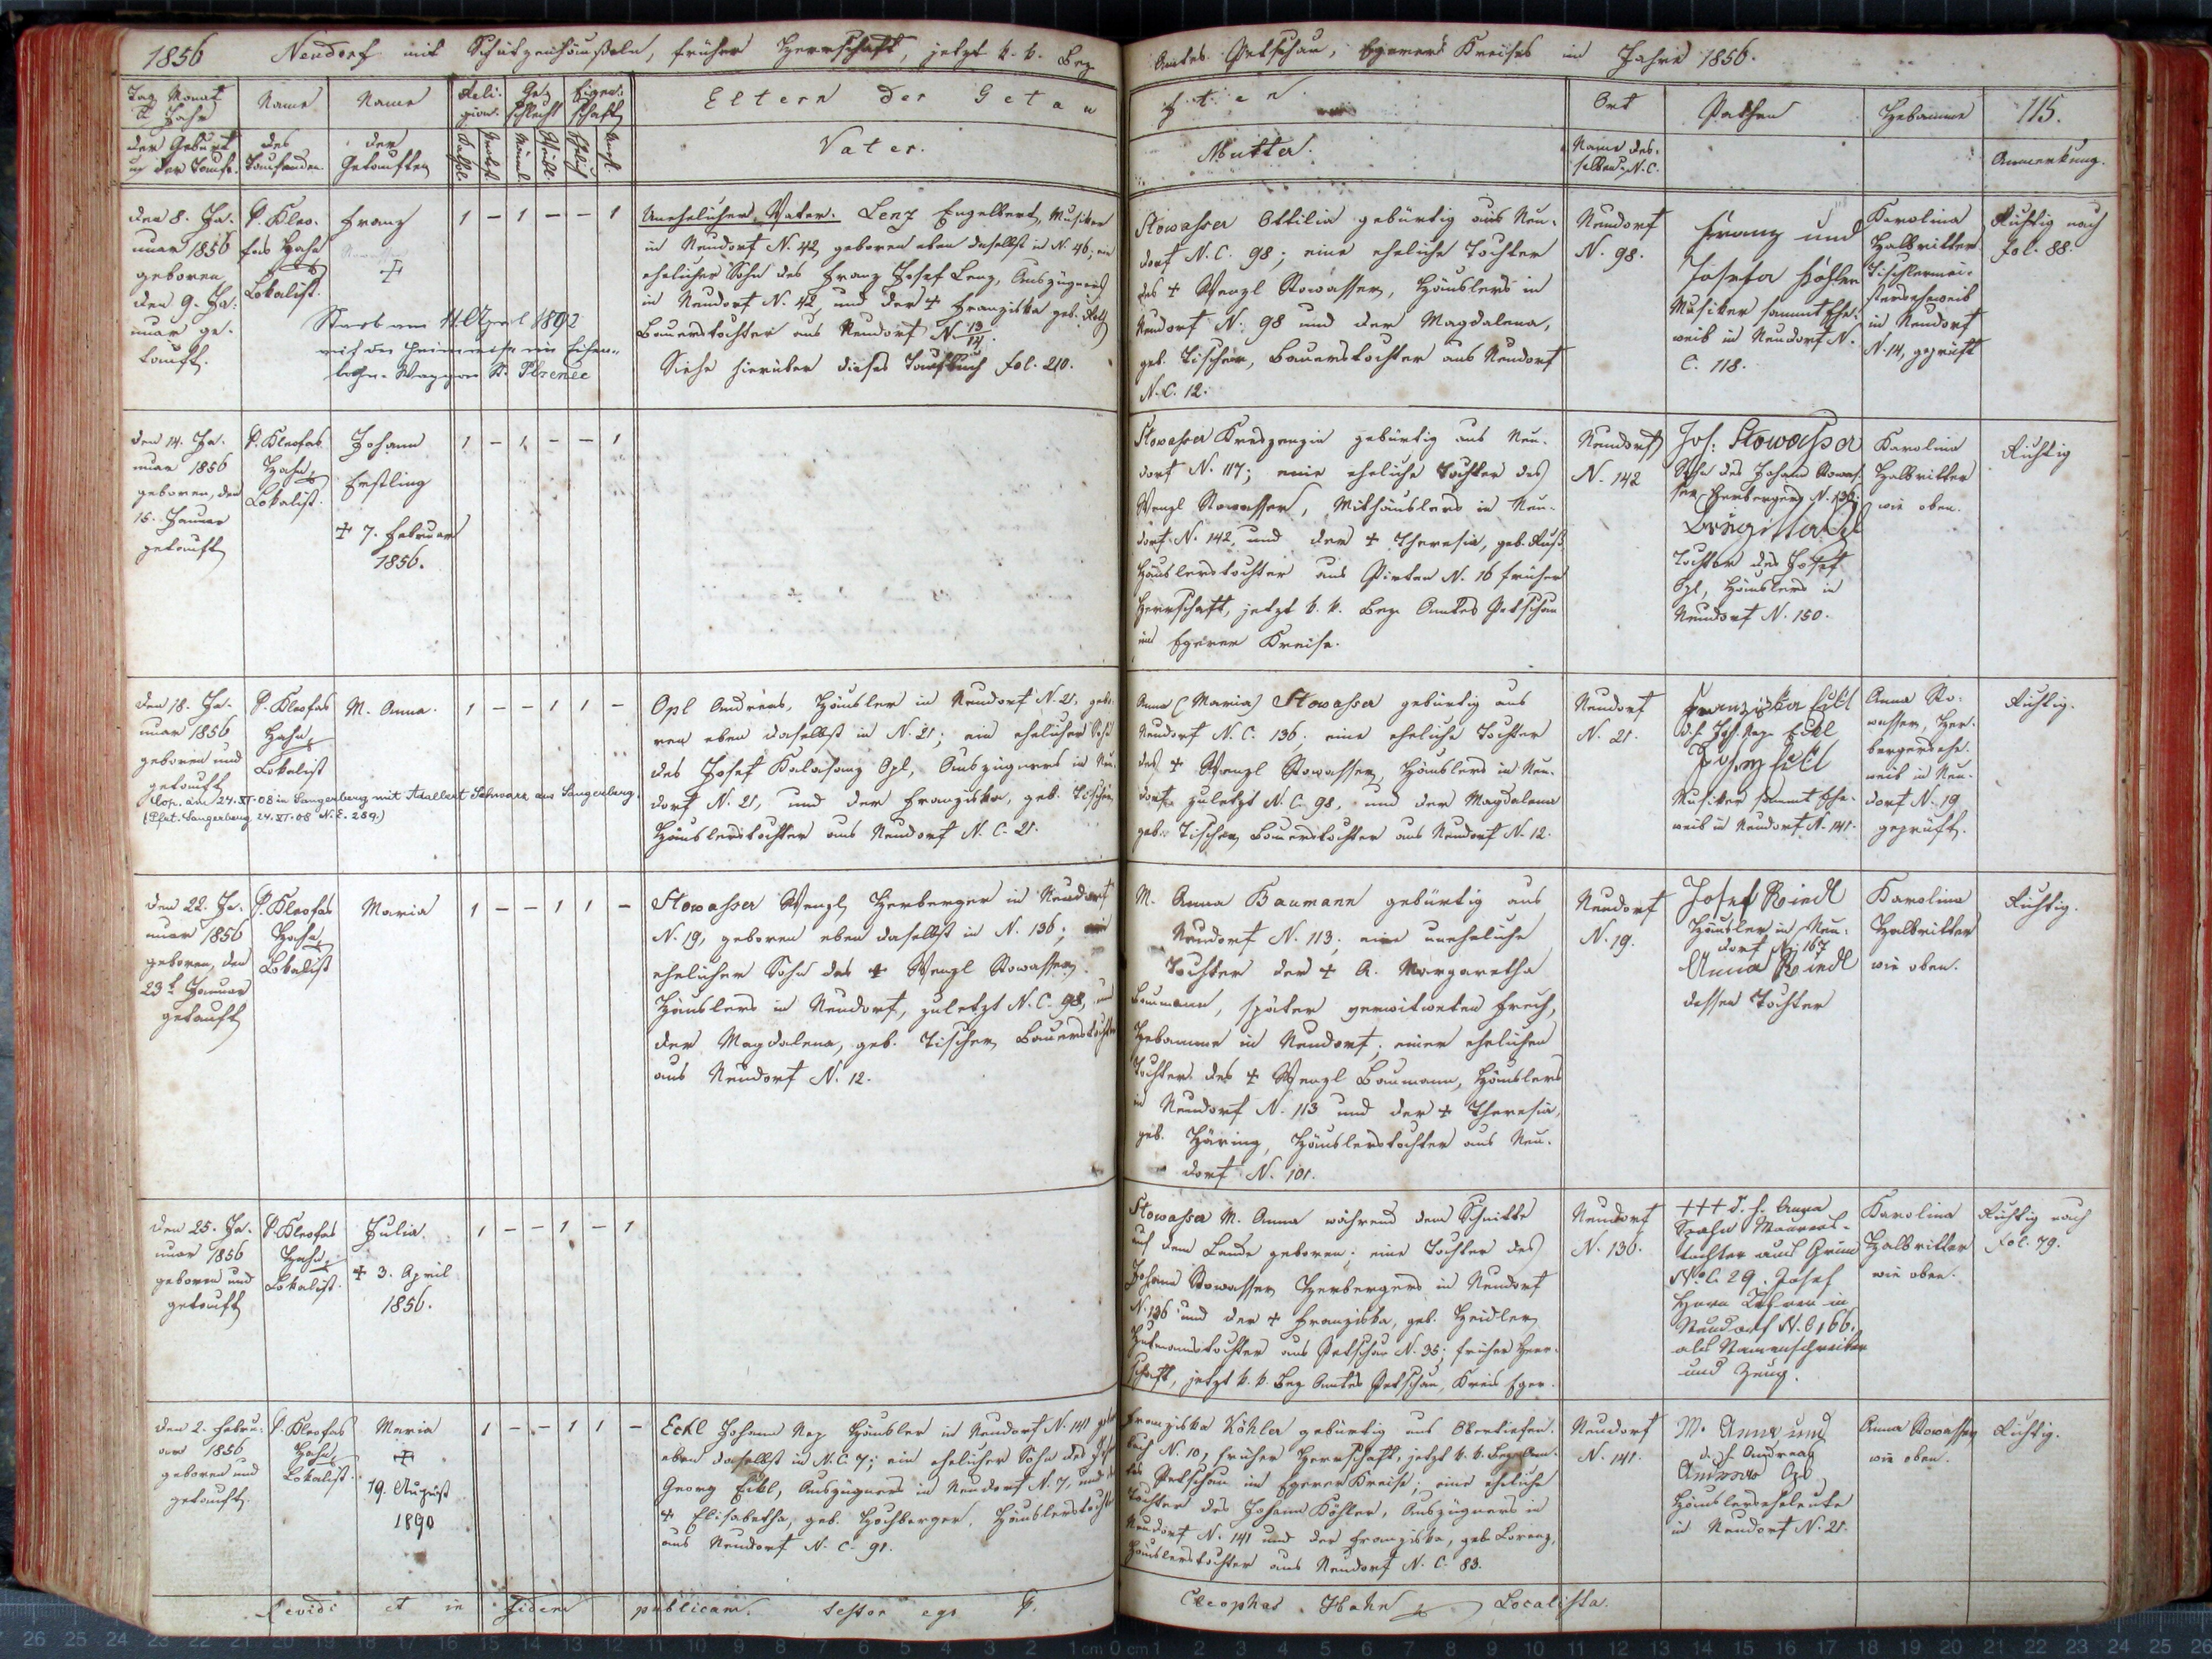 1856 Neudorf mit Schützenhäuseln, früher Herrschaft, jetzt k. k. Bez
Amtes Petschau, Egerer Kreises im Jahre 1856.
Tag Monat
u Jahr
der Geburt
u der Taufe.
Name
des
Taufenden
Name
der
Getauften
Reli-
gion.
Ge-
schlecht
Eigen-
schaft
Kathol.
Männl.
Weibl.
Ehelich
Unehl.
Eltern der Getau
ften
Vater.
Mutter.
Ort
Name des-
selben u N. C.
Pathen
Hebamme
115.
Anmerkung.
den 8. Ja-
nuar 1856
geboren
den 9. Ja-
nuar ge-
tauft.
P. Kleo-
fas Hahn
Lokalist.
Franz
+
1 – 1 – – 1
Starb am 11. April 1892
auf der Heimreise im Eisen-
bahn-Waggon
Unehelicher Vater. Lenz Engelbert, Musiker
in Neudorf N. 42 geboren eben daselbst in N. 46; ein
ehelicher Sohn des Franz Josef Lenz, Auszüglers
in Neudorf N. 42 und der + Franziska geb.
Bauerstochter aus Neudorf N. 13/14.
Siehe hierüber dieses Taufbuch fol. 210.
Stowasser Ottilia gebürtig aus Neu-
dorf N. C. 98; eine eheliche Tochter
des + Wenzl Stowasser, Häuslers in
Neudorf N. 98 und der Magdalena,
geb. Tischer, Bauerstochter aus Neudorf
N. C. 12.
Neudorf
N. 98.
Franz und
Josefa Köhler
Musiker sammt Ehe-
weib in Neudorf N.
C. 118.
Karolina
Halbritter
Tischlermei-
sterseheweib
in Neudorf
N. 14, geprüft
Richtig nach
fol. 88.
den 14. Ja-
nuar 1856
geboren, den
15. Januar
getauft
P. Kleofas
Hahn
Lokalist.
Johann
Erstling
+ 7. Februar
1856.
1 – 1 – – 1
Stowasser Kreszenzia gebürtig aus Neu-
dorf N. 117; eine eheliche Tochter des
Wenzl Stowasser, Mithäuslers in Neu-
dorf N. 142 und der + Theresia, geb. Ruß
Häuslerstochter aus Pirten N. 16 früher
Herrschaft, jetzt k. k. Bez Amtes Petschau
im Egerer Kreise.
Neudorf
N. 142
Joh: Stowasser
Sohn des Johann Stowas-
ser Herbergers N. 136;
Brigitta Opl
Tochter des Josef
Opl, Häuslers in
Neudorf N. 150.
Karolina
Halbritter
wie oben.
Richtig
den 18. Ja-
nuar 1856
geboren und
getauft
P. Kleofas
Hahn
Lokalist
M. Anna.
1 – – 1 1 –
Cop. am 24. XI. 08 in Sangerberg mit Adalbert Schwarz aus Sangerberg.
(Pfat. Sangerberg 24. XI. 08 N. E. 289.)
Opl Andreas, Häusler in Neudorf N. 21. gebo-
ren eben daselbst in N. 21; ein ehelicher Sohn
des Josef Kalasanz Opl, Auszüglers in Neu-
dorf N. 21, und der Franziska, geb. Tischer,
Häuslerstochter aus Neudorf N. C. 21.
Anna (Maria) Stowasser gebürtig aus
Neudorf N. C. 136; eine eheliche Tochter
des + Wenzl Stowasser, Häuslers in Neu-
dorf zuletzt N. C. 98, und der Magdalena
geb. Tischer, Bauerstochter aus Neudorf N. 12.
Neudorf
N. 21.
Franziska Eckl
d. h. Joh. Nep. Eckl
Musiker sammt Ehe-
weib in Neudorf N. 141.
Anna Sto-
wasser, Her-
bergersehe-
weib in Neu-
dorf N. 19
geprüft.
Richtig.
den 22. Ja-
nuar 1856
geboren, den
23t Januar
getauft
P. Kleofas
Hahn
Lokalist
Maria
1 – – 1 1 –
Stowasser Wenzl, Herberger in Neudorf
N. 19, geboren eben daselbst in N. 136; ein
ehelicher Sohn des + Wenzl Stowasser
Häuslers in Neudorf, zuletzt N. C. 98, und
der Magdalena, geb. Tischer, Bauerstochter
aus Neudorf N. 12.
M. Anna Baumann gebürtig aus
Neudorf N. 113; eine uneheliche
Tochter der + A. Margaretha
Baumann, später verwitweten Frech,
Hebamme in Neudorf; einer ehelichen
Tochter des + Wenzl Baumann, Häuslers
in Neudorf N. 113 und der + Theresia,
geb. Häring, Häuslerstochter aus Neu-
dorf N. 101.
Neudorf
N. 19.
Josef Riedl
Häusler in Neu-
dorf N. 167
Anna Riedl
dessen Tochter
Karolina
Halbritter
wie oben.
Richtig.
den 25. Ja-
nuar 1856
geboren und
getauft
P. Kleofas
Hahn
Lokalist.
Julia.
+ 3. April
1856.
1 – – 1 – 1
Stowasser M. Anna während dem Schnitte
auf dem Lande geboren; eine Tochter des
Johann Stowasser Herbergers in Neudorf
N. 136 und der + Franziska, geb. Heidler
Hutmannstochter aus Petschau N. 35; früher Herr-
schaft, jetzt k. k. Bez Amtes Petschau, Kreis Eger.
Neudorf
N. 136.
+++ d. h. Anna
Maurers-
tochter aus Grün
N. C. 29. Josef
Horn Lehrer in
Neudorf N. C 166.
als Namenschreiber
und Zeug.
Karolina
Halbritter
wie oben.
Richtig nach
fol. 79.
den 2. Febru-
ar 1856
geboren und
getauft.
P. Kleofas
Hahn
Lokalist.
Maria
+
19. August
1890
1 – – 1 1 –
Eckl Johann Nep Häusler in Neudorf N. 141 gebor
eben daselbst in N. C. 7; ein ehelicher Sohn des
Georg Eckl, Auszüglers in Neudorf N. 7, und der
+ Elisabetha, geb. Hochberger, Häuslerstochter
aus Neudorf N. C. 91.
Franziska Köhler gebürtig aus Obertiefen-
bach N. 10, früher Herrschaft, jetzt k. k. Bez Am-
tes Petschau im Egerer Kreise; eine eheliche
Tochter des Johann Köhler, Auszüglers in
Neudorf N. 141 und der Franziska, geb. Lorenz,
Häuslerstochter aus Neudorf N. C. 83.
Neudorf
N. 141.
M. Anna und
d. h. Andreas
Andreas Opl
Häuslerseheleute
in Neudorf N. 21.
Anna Stowasser
wie oben.
Richtig.
Revidi et in fidem publicam testor ego P. Cleophas Hahn Localista.